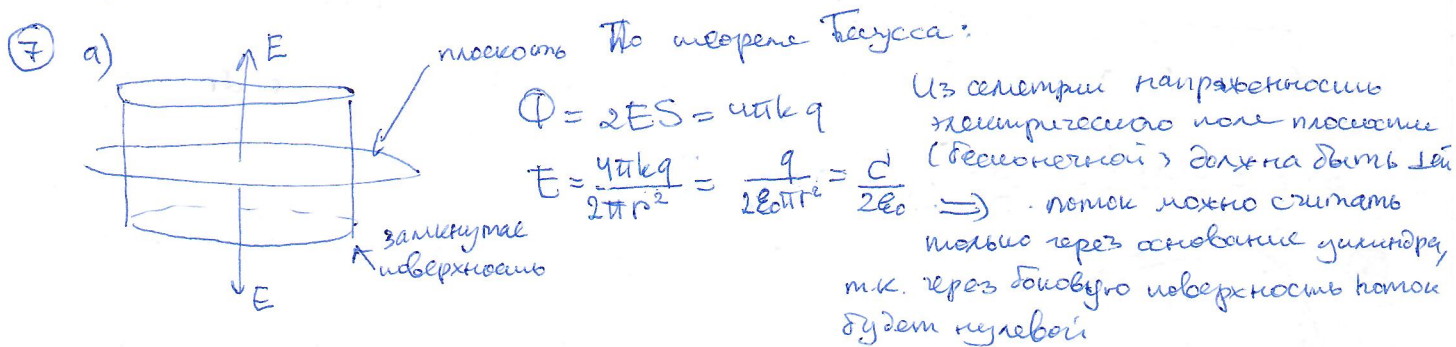 7 а)
E
плоскость
По теореме Гаусса:
Φ = 2ES = 4πkq
E = 4πkq / 2πr² = q / 2ε₀πr² = σ / 2ε₀
Из симетрии напряженность
электрического поле плоскости
(бесконечной) должна быть ⊥ ей
=> поток можно считать
только через основание цилиндра,
т.к. через боковую поверхность поток
будет нулевой
замкнутая
поверхность
E